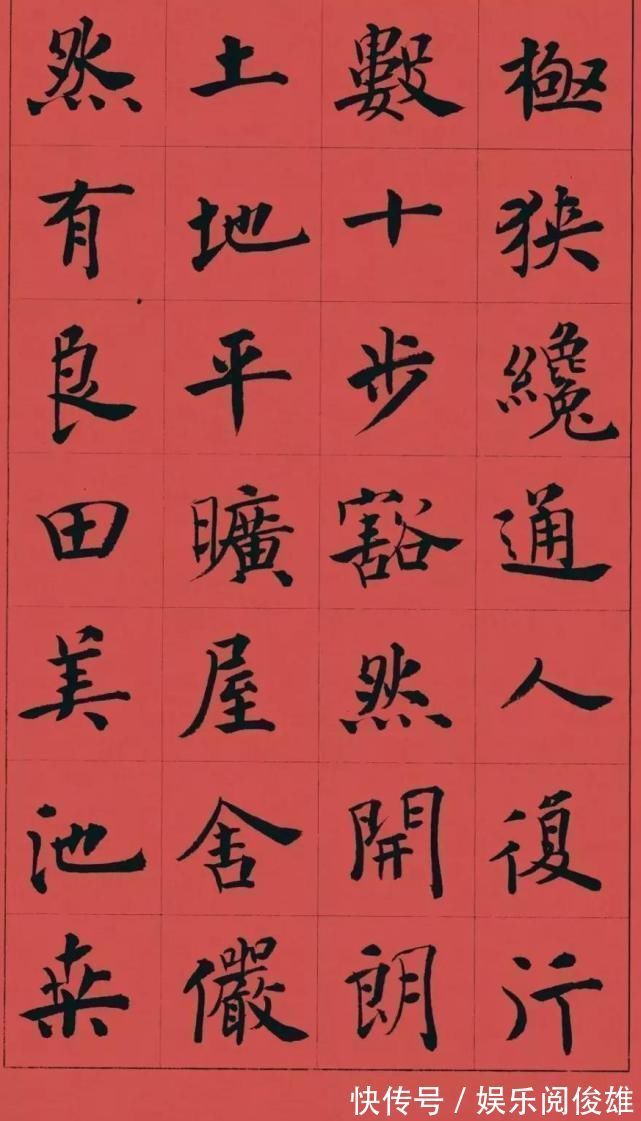 極狹纔通人復行
數十步豁然開朗
土地平曠屋舍儼
然有良田美池桑
快传号 / 娱乐阅俊雄